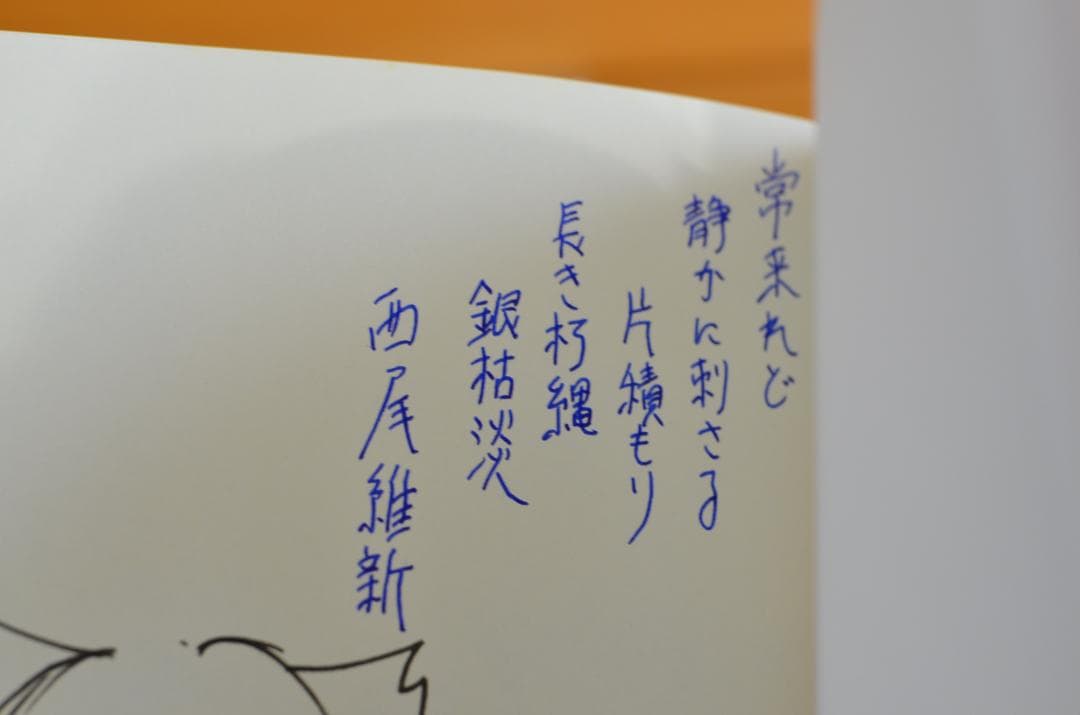 常来れど
静かに刺さる
片積もり
長き朽縄
銀枯淡
西尾維新